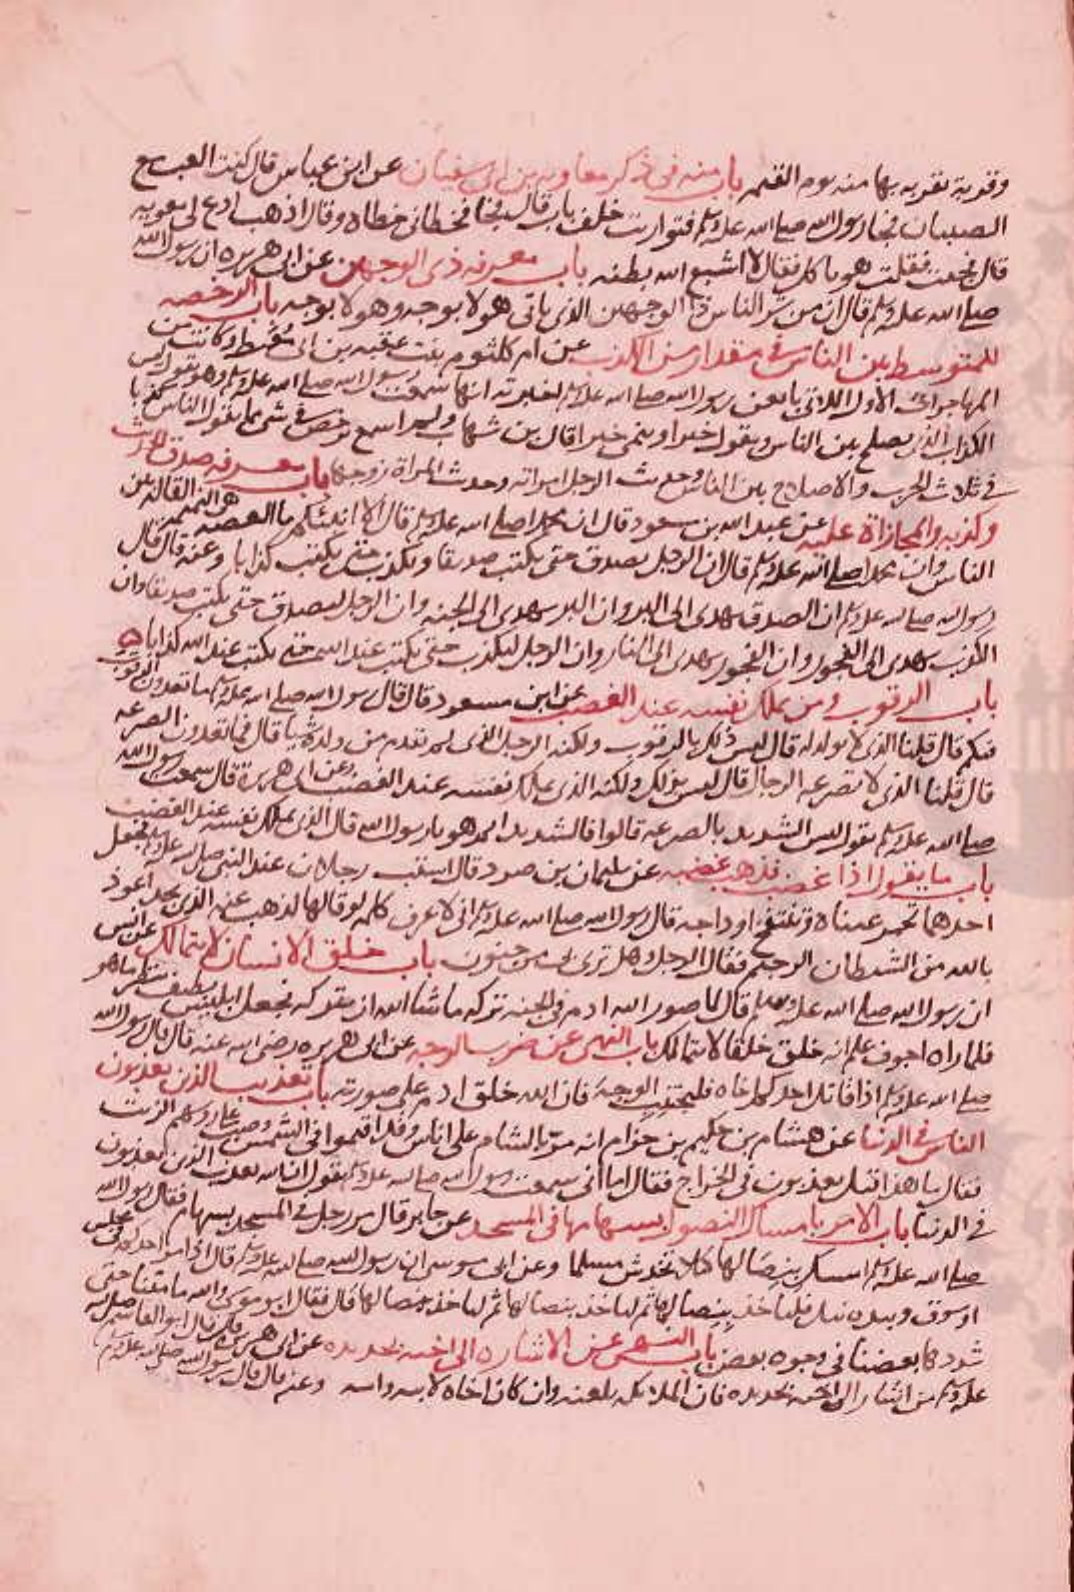 وقربة تقربه بها منه يوم القيمة باب منه في ذكر معاوية بن ابي سفيان عن ابن عباس قال كنت العب مع
الصبيان فجا رسول الله صلى الله عليه وسلم فتواريت خلف باب قال فجا فحطاني حطاه وقال اذهب ادع لي معوية
قال فجئت فقلت هو ياكل فقال لا اشبع الله بطنه باب معرفة ذي الوجهين عن ابي هريره ان رسول الله
صلى الله عليه وسلم قال ان من شر الناس ذا الوجهين الذي ياتي هولا بوجه وهولا بوجه باب الرخصه
للمتوسط بين الناس في مقدار من الكذب عن ام كلثوم بنت عقبه بن ابي معيط وكانت من
المهاجرات الاول اللاتي بايعن رسول الله صلى الله عليه وسلم اخبرته انها سمعت رسول الله صلى الله عليه وسلم وهو يقول ليس
الكذاب الذي يصلح بين الناس ويقول خيرا وينمي خيرا قال بن شهاب ولم اسمع يرخص في شي مما يقول الناس كذبا
في ثلاث الحرب والاصلاح بين الناس وحديث الرجل امراته وحديث المراة زوجها باب معرفة صدق الحديث
وكذبه والمجازاة عليه عن عبد الله بن مسعود قال ان محمدا صلى الله عليه وسلم قال الا انبئكم ما العضه هي النميمه القالة بين
الناس وان محمدا صلى الله عليه وسلم قال ان الرجل يصدق حتى يكتب صديقا ويكذب حتى يكتب كذابا وعنه قال قال
رسول الله صلى الله عليه وسلم ان الصدق يهدي الى البر وان البر يهدي الى الجنه وان الرجل ليصدق حتى يكتب صديقا وان
الكذب يهدي الى الفجور وان الفجور يهدي الى النار وان الرجل ليكذب حتى يكتب عند الله كذابا
باب الرقوب ومن يملك نفسه عند الغضب عن ابن مسعود قال قال رسول الله صلى الله عليه وسلم ما تعدون الرقوب
فيكم قال قلنا الذي لا يولد له قال ليس ذلك بالرقوب ولكنه الرجل الذي لم يقدم من ولده شيا قال فما تعدون الصرعه
قال قلنا الذي لا تصرعه الرجال قال ليس بذلك ولكنه الذي يملك نفسه عند الغضب وعن ابي هريرة قال سمعت رسول الله
صلى الله عليه وسلم يقول ليس الشديد بالصرعه قالوا فالشديد ايم هو يا رسول الله قال الذي يملك نفسه عند الغضب
باب ما يقول اذا غضب فذهب غضبه عن سليمان بن صرد قال استب رجلان عند النبي صلى الله عليه وسلم فجعل
احدهما تحمر عيناه وتنتفخ اوداجه قال رسول الله صلى الله عليه وسلم اني لاعرف كلمه لو قالها لذهب عنه الذي يجد اعوذ
بالله من الشيطان الرجيم فقال الرجل وهل ترى بي من جنون باب خلق الانسان لا يتمالك عن انس
ان رسول الله صلى الله عليه وسلم قال لما صور الله ادم في الجنه تركه ما شا الله ان يتركه فجعل ابليس يطيف ينظر ما هو
فلما راه اجوف علم انه خلق خلقا لا يتمالك باب النهي عن ضرب الوجه عن ابي هريره رضي الله عنه قال قال رسول الله
صلى الله عليه وسلم اذا قاتل احدكم اخاه فليجتنب الوجه فان الله خلق ادم على صورته باب تعذيب الذين يعذبون
الناس في الدنيا عن هشام بن حكيم بن حزام انه مر بالشام على اناس وقد اقيموا في الشمس وصب على روسهم الزيت
فقال ما هذا قيل يعذبون في الخراج فقال اما اني سمعت رسول الله صلى الله عليه وسلم يقول ان الله يعذب الذين يعذبون
في الدنيا باب الامر بامساك النصول بسهامها في المسجد عن جابر قال مر رجل في المسجد بسهام فقال رسول الله
صلى الله عليه وسلم امسك بنصالها كلا تخدش مسلما وعن ابي موسى ان رسول الله صلى الله عليه وسلم قال اذا مر احدكم في مجلس
او سوق وبيده نبل فلياخذ بنصالها ثم لياخذ بنصالها ثم لياخذ بنصالها قال فقال ابو موسى والله ما متنا حتى
سددناها بعضنا في وجوه بعض باب النهي عن الاشاره الى اخيه بحديده عن ابي هريره قال قال ابو القاسم صلى الله
عليه وسلم من اشار الى اخيه بحديده فان الملائكه تلعنه وان كان اخاه لابيه وامه وعنه قال قال رسول الله صلى الله عليه وسلم